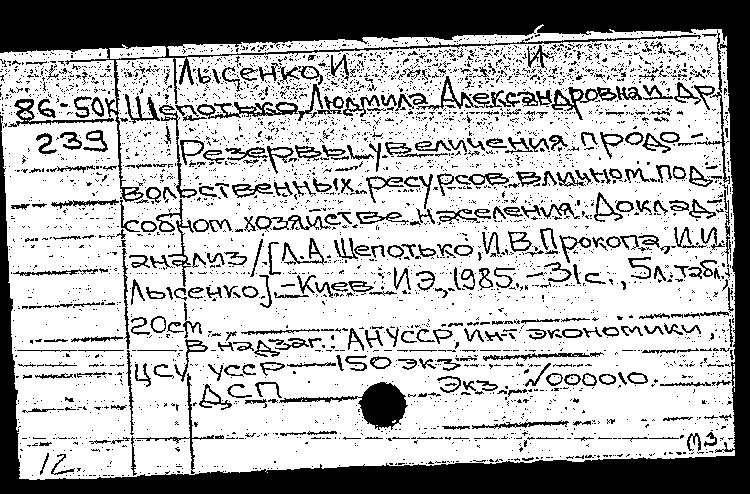 Лысенко, И И
86-50к Шепотько, Людмила Александровна и др.
239 Резервы увеличения продо-
вольственных ресурсов в личном под-
собном хозяйстве населения: Доклад-
анализ / [Л.А. Шепотько, И.В. Прокопа, И.И.
Лысенко]. - Киев: ИЭ, 1985. - 31с., 5л. табл,
20см
В надзаг.: АН УССР, Ин-т экономики,
ЦСУ УССР 150 экз
ДСП Экз. №000010.
12 МЗ